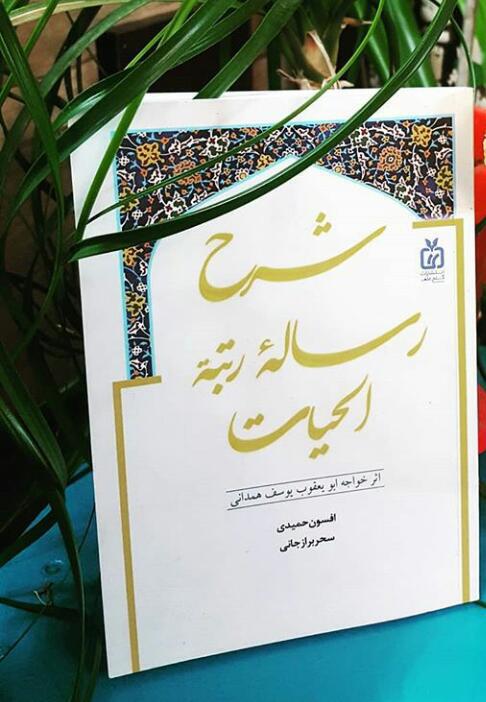 شرح
رسالهٔ رتبة
الحیات
اثر خواجه ابو یعقوب یوسف همدانی
افسون حمیدی
سحر برازجانی
انتشارات